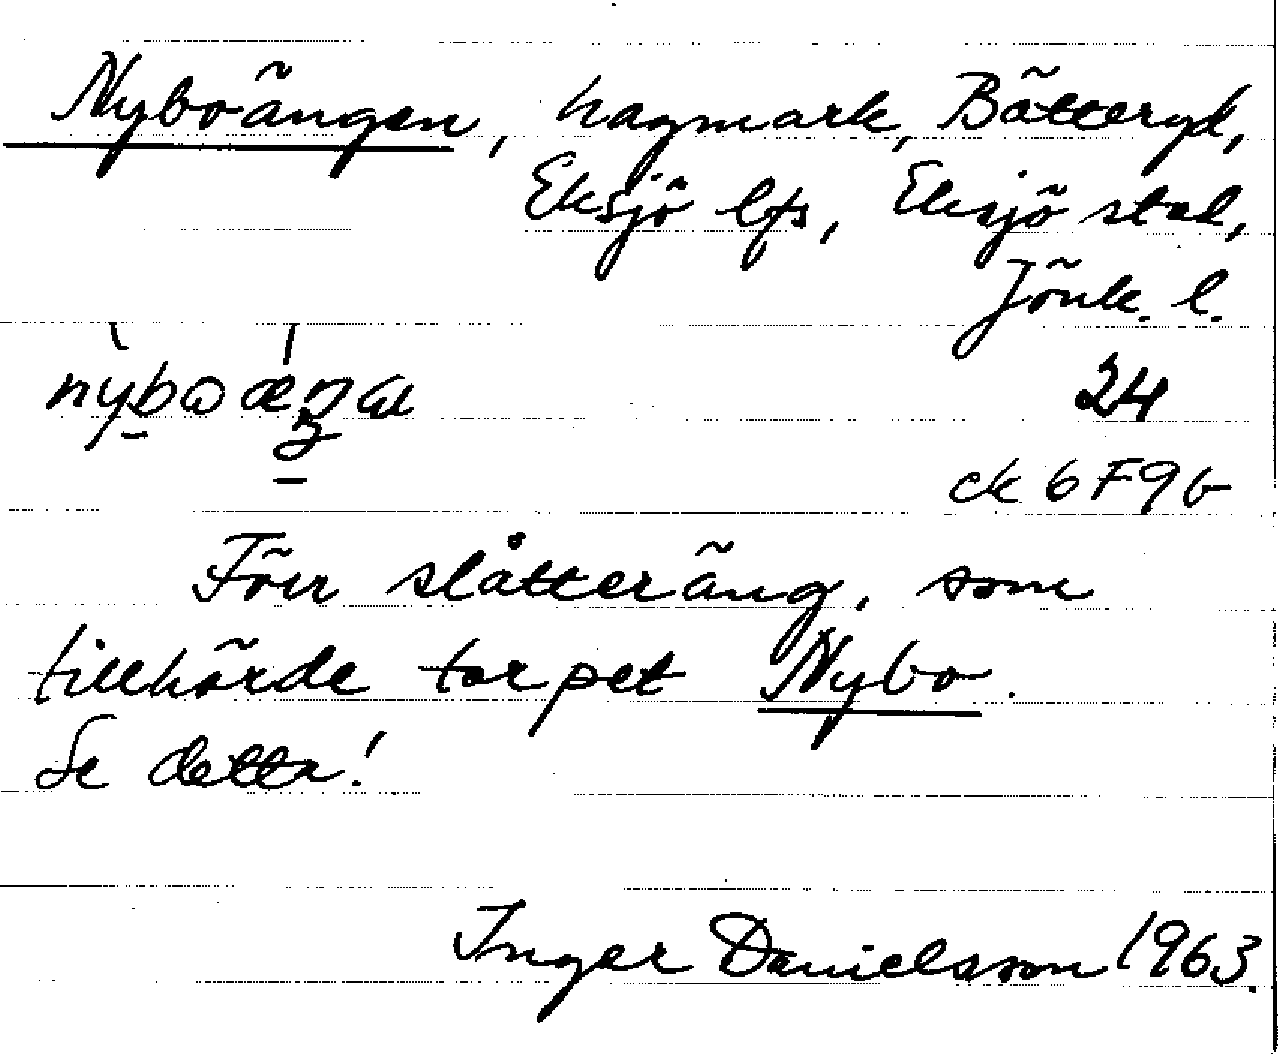 Nyboängen, hagmark, Bätteryd,
Eksjö lfs, Eksjö stad,
Jönk. l.
24
ck 6F9b
Förr slåtteräng, som
tillhörde torpet Nybo.
Se detta!
Inger Danielsson 1963.